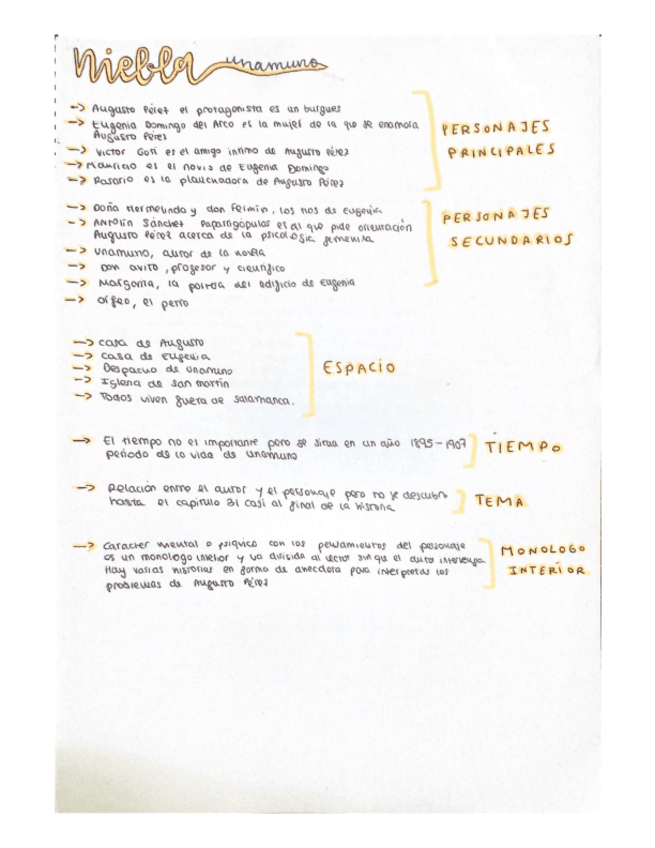 Niebla unamuno
-> Augusto Pérez el protagonista es un burgues
-> Eugenia Domingo del Arco es la mujer de la que se enamora
Augusto Pérez
-> Victor Goti es el amigo intimo de Augusto Pérez
-> Mauricio es el novio de Eugenia Domingo
-> Rosario es la planchadora de Augusto Pérez
PERSONAJES
PRINCIPALES
-> Doña Hermelinda y don Fermin, los tios de Eugenia
-> Antolín Sánchez Paparrigópulos es al que pide orientación
Augusto Pérez acerca de la psicología femenina
-> Unamuno, autor de la novela
-> Don avito, profesor y cientifico
-> Margarita, la portera del edificio de Eugenia
-> orfeo, el perro
PERSONAJES
SECUNDARIOS
-> casa de Augusto
-> casa de Eugenia
-> Despacho de unamuno
-> Iglesia de san martin
-> Todos viven fuera de salamanca.
ESPACIO
-> El tiempo no es importante pero se situa en un año 1895-1907
periodo de la vida de unamuno
TIEMPO
-> Relación entre el autor y el personaje pero no se descubre
hasta el capitulo 31 casi al final de la historia
TEMA
-> Caracter mental o psiquico con los pensamientos del personaje
es un monologo interior y va dirigida al lector sin que el autor intervenga.
Hay varias historias en forma de anecdota para interpretar los
problemas de Augusto Pérez
MONOLOGO
INTERIOR